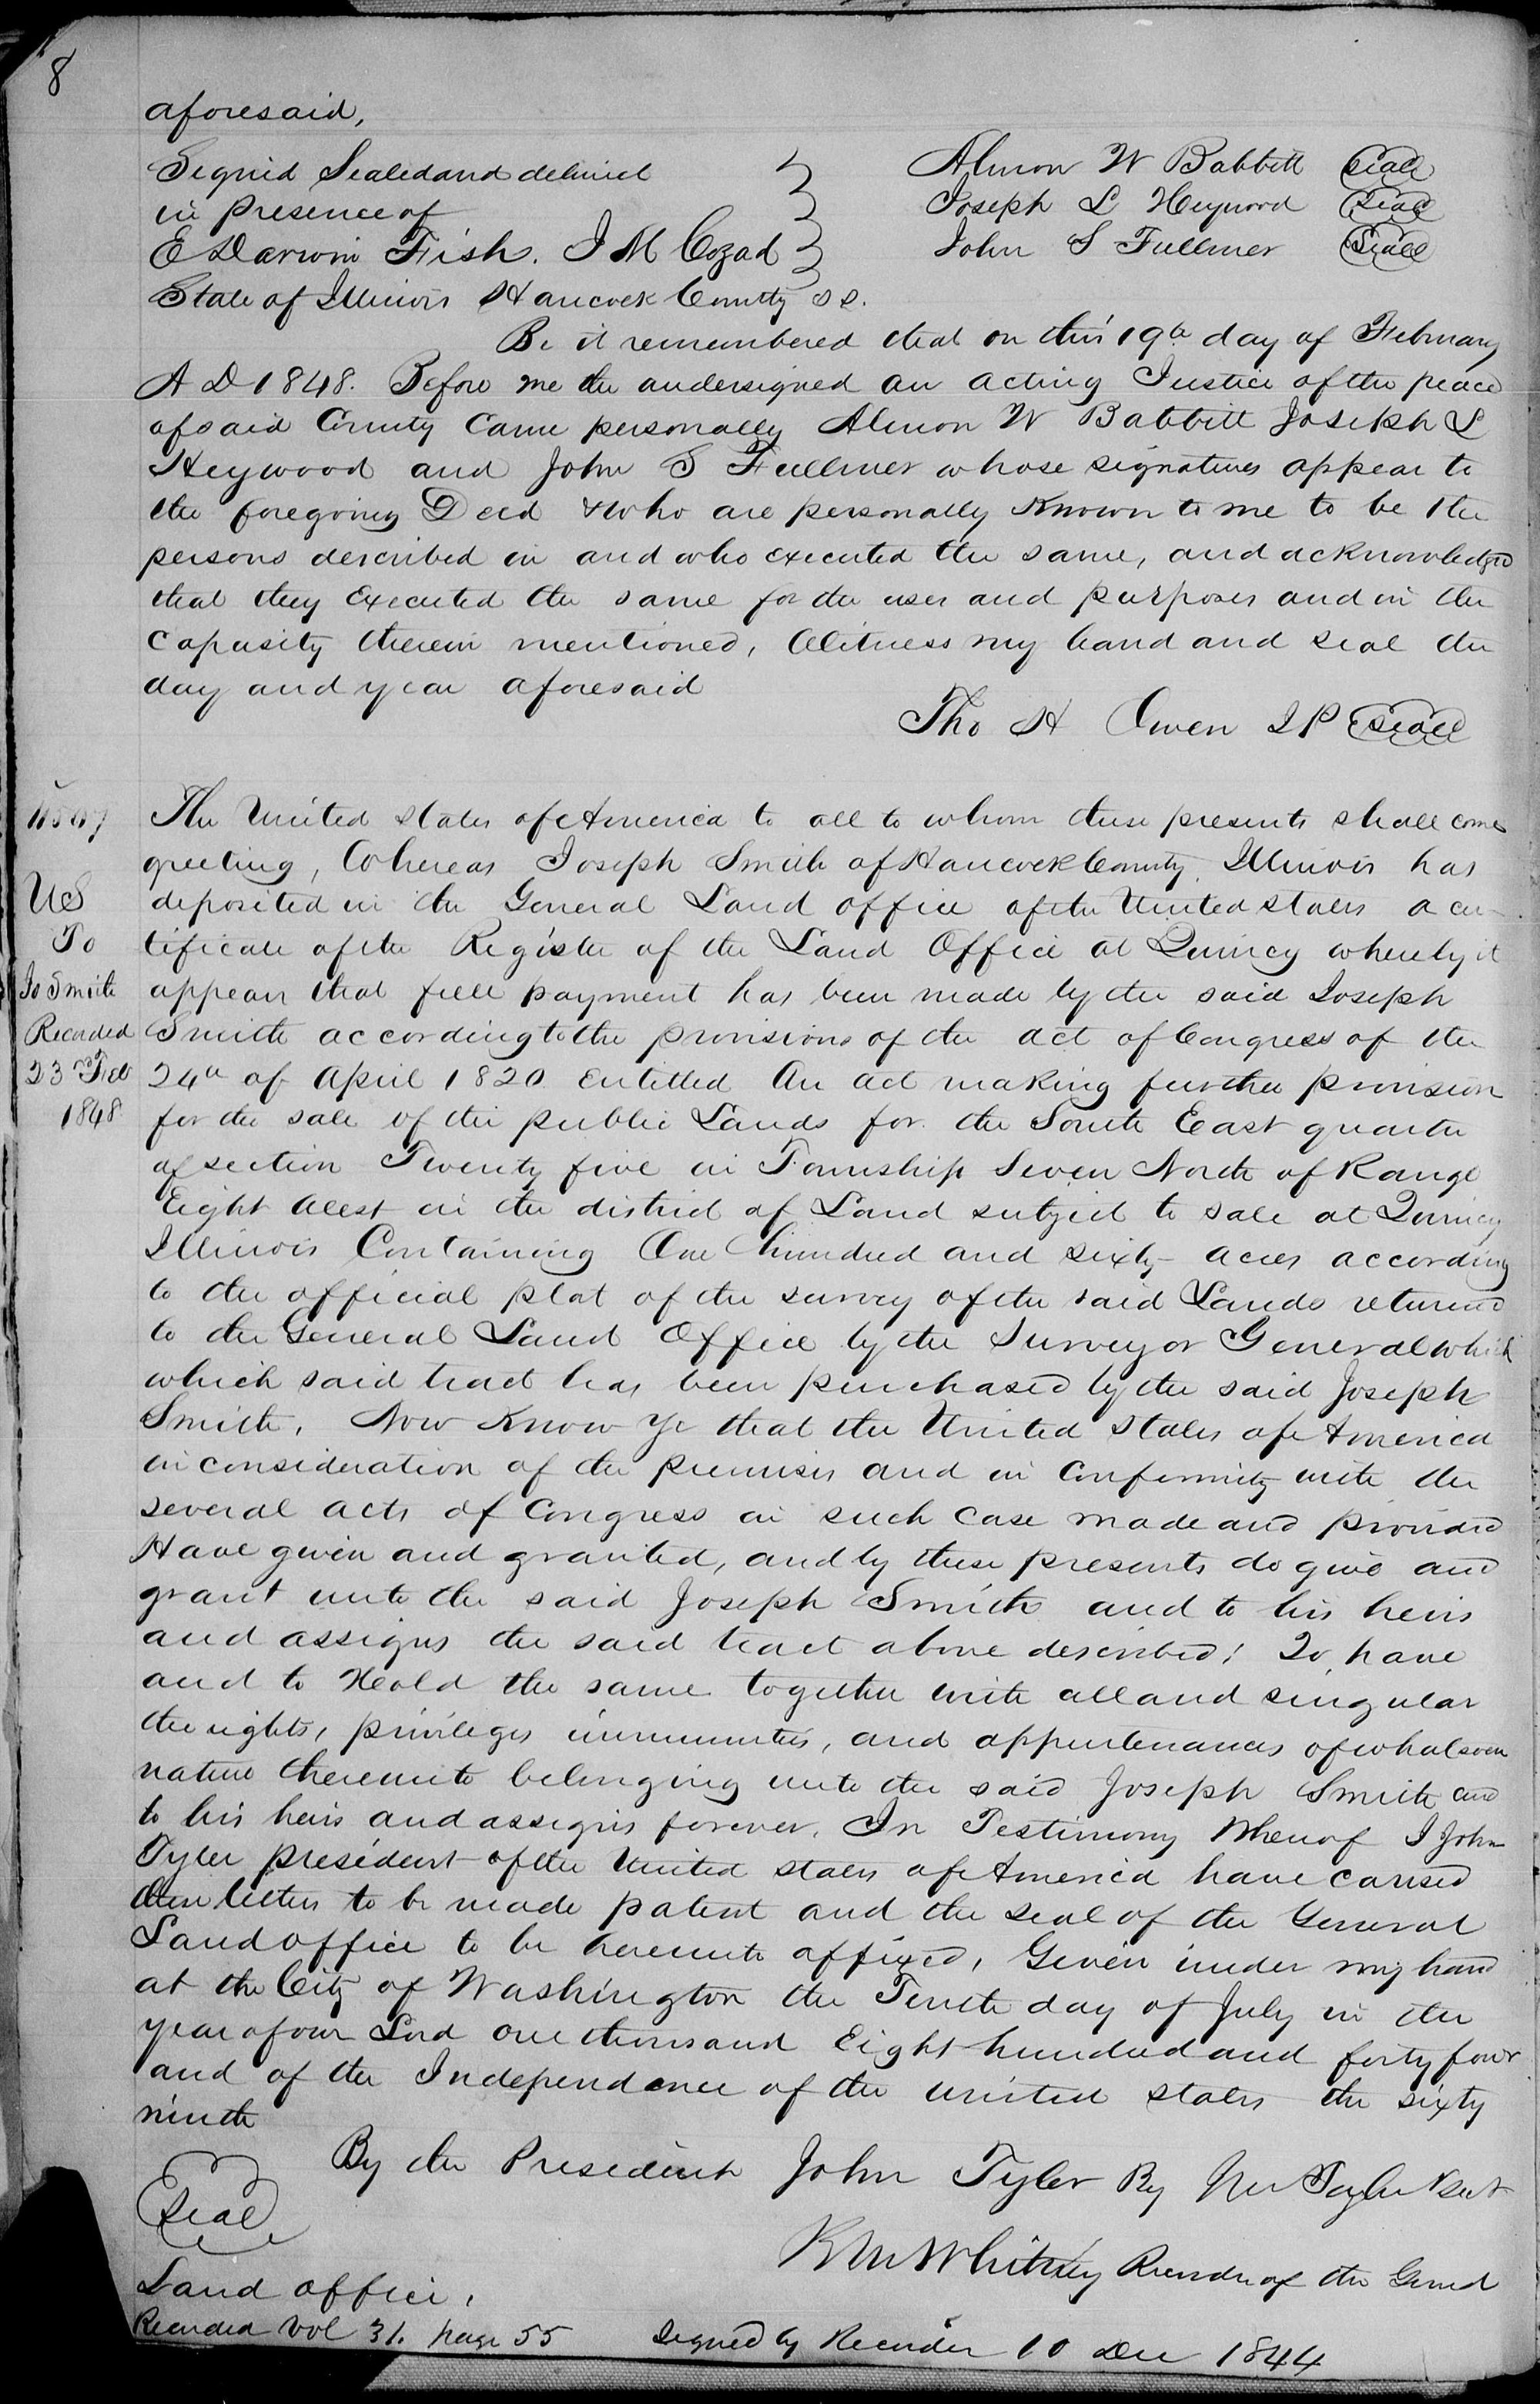 8
aforesaid,
Signed Sealed and delivied
in presence of
E Darwin Fish. J M Cozad
Almon W Babbitt Seal
Joseph L Heywood Seal
John S Fullmer Seal
State of Illinois Hancock County ss.
Be it remembered that on this 19th day of February
A D 1848. Before me the undersigned an acting Justice of the peace
of said County Came personally Almon W Babbitt Joseph L
Heywood and John S Fullmer whose signatures appear to
the foregoing Deed & who are personally Known to me to be the
persons described in and who executed the same, and acknowledged
that they Executed the same for the uses and purposes and in the
Capasity therein mentioned, Witness my hand and seal the
day and year aforesaid
Tho H Owen J P Seal
US
To
Js Smith
Recorded
23rd Feb
1848
The United States of America to all to whom these presents shall come
greeting, Whereas Joseph Smith of Hancock County Illinois has
deposited in the General Land office of the United States a cer-
tificate of the Register of the Land Office at Quincy whereby it
appears that full payment has been made by the said Joseph
Smith according to the provisions of the act of Congress of the
24th of April 1820 Entitled An act making further provision
for the sale of the public Lands for the South East quarter
of section Twenty five in Township Seven North of Range
Eight West in the district of Land subject to sale at Quincy
Illinois Containing One hundred and sixty acres according
to the official plat of the survey of the said Lands returned
to the General Land Office by the Surveyor General which
which said tract has been purchased by the said Joseph
Smith. Now Know Ye that the United States of America
in consideration of the premises and in Conformity with the
several acts of Congress in such case made and provided
Have given and granted, and by these presents do give and
grant unto the said Joseph Smith and to his heirs
and assigns the said tract above described; To have
and to Hold the same together with all and singular
the rights, privileges immunities, and appurtenances of whatsoever
nature thereunto belonging unto the said Joseph Smith and
to his heirs and assigns forever. In Testimony Whereof I John
Tyler president of the United States of America have caused
these letters to be made patent and the seal of the General
Land office to be hereunto affixed, Given under my hand
at the City of Washington the Tenth day of July in the
year of our Lord one thousand Eight hundred and forty four
and of the Independence of the united states the sixty
ninth
By the President John Tyler By Tyler
Seal
Whitney Recorder of the Genrl
Land office,
Recorded Vol 31. page 55 Signed by Recorder 10 Dec 1844